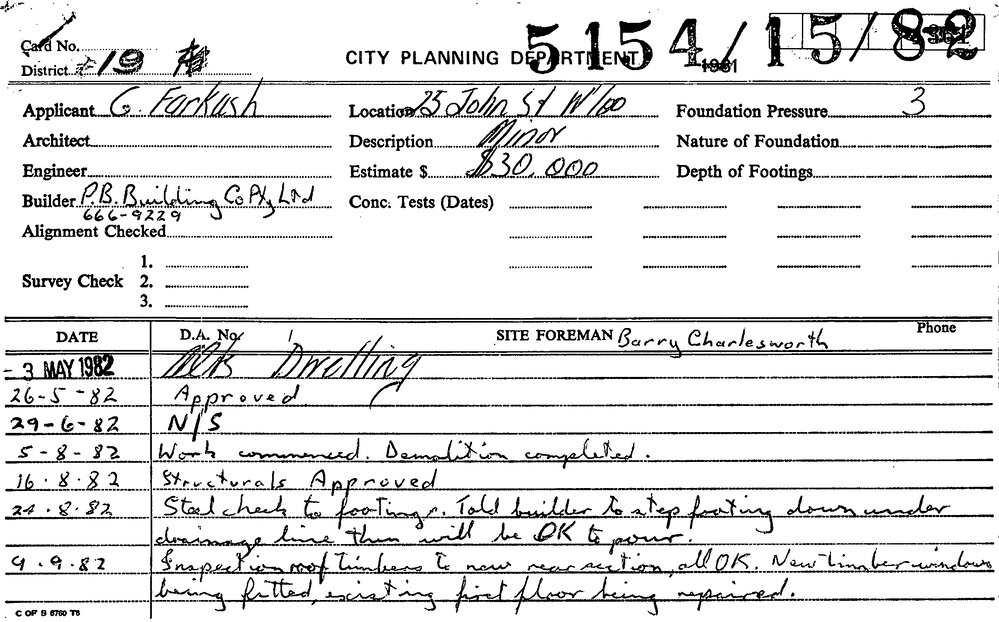 5154/15/82
Card No.
District 19
CITY PLANNING DEPARTMENT
1981
Applicant G. Farkash
Location 25 John St W'loo
Foundation Pressure 3
Architect
Description Minor
Nature of Foundation
Engineer
Estimate $ $30,000
Depth of Footings
Builder P.B. Building Co Pty Ltd
666-9229
Conc. Tests (Dates)
Alignment Checked
Survey Check
1.
2.
3.
DATE D.A. No. SITE FOREMAN Barry Charlesworth Phone
- 3 MAY 1982 Dwelling
26-5-82 Approved
29-6-82 N/S
5-8-82 Work commenced. Demolition completed.
16.8.82 Structurals Approved
24.8.82 Steel check to footings. Told builder to step footing down under
drainage line then will be OK to pour.
9.9.82 Inspection roof timbers to new rear section, all OK. New timber windows
being fitted, existing first floor being repaired.
C OF S 5750 T5